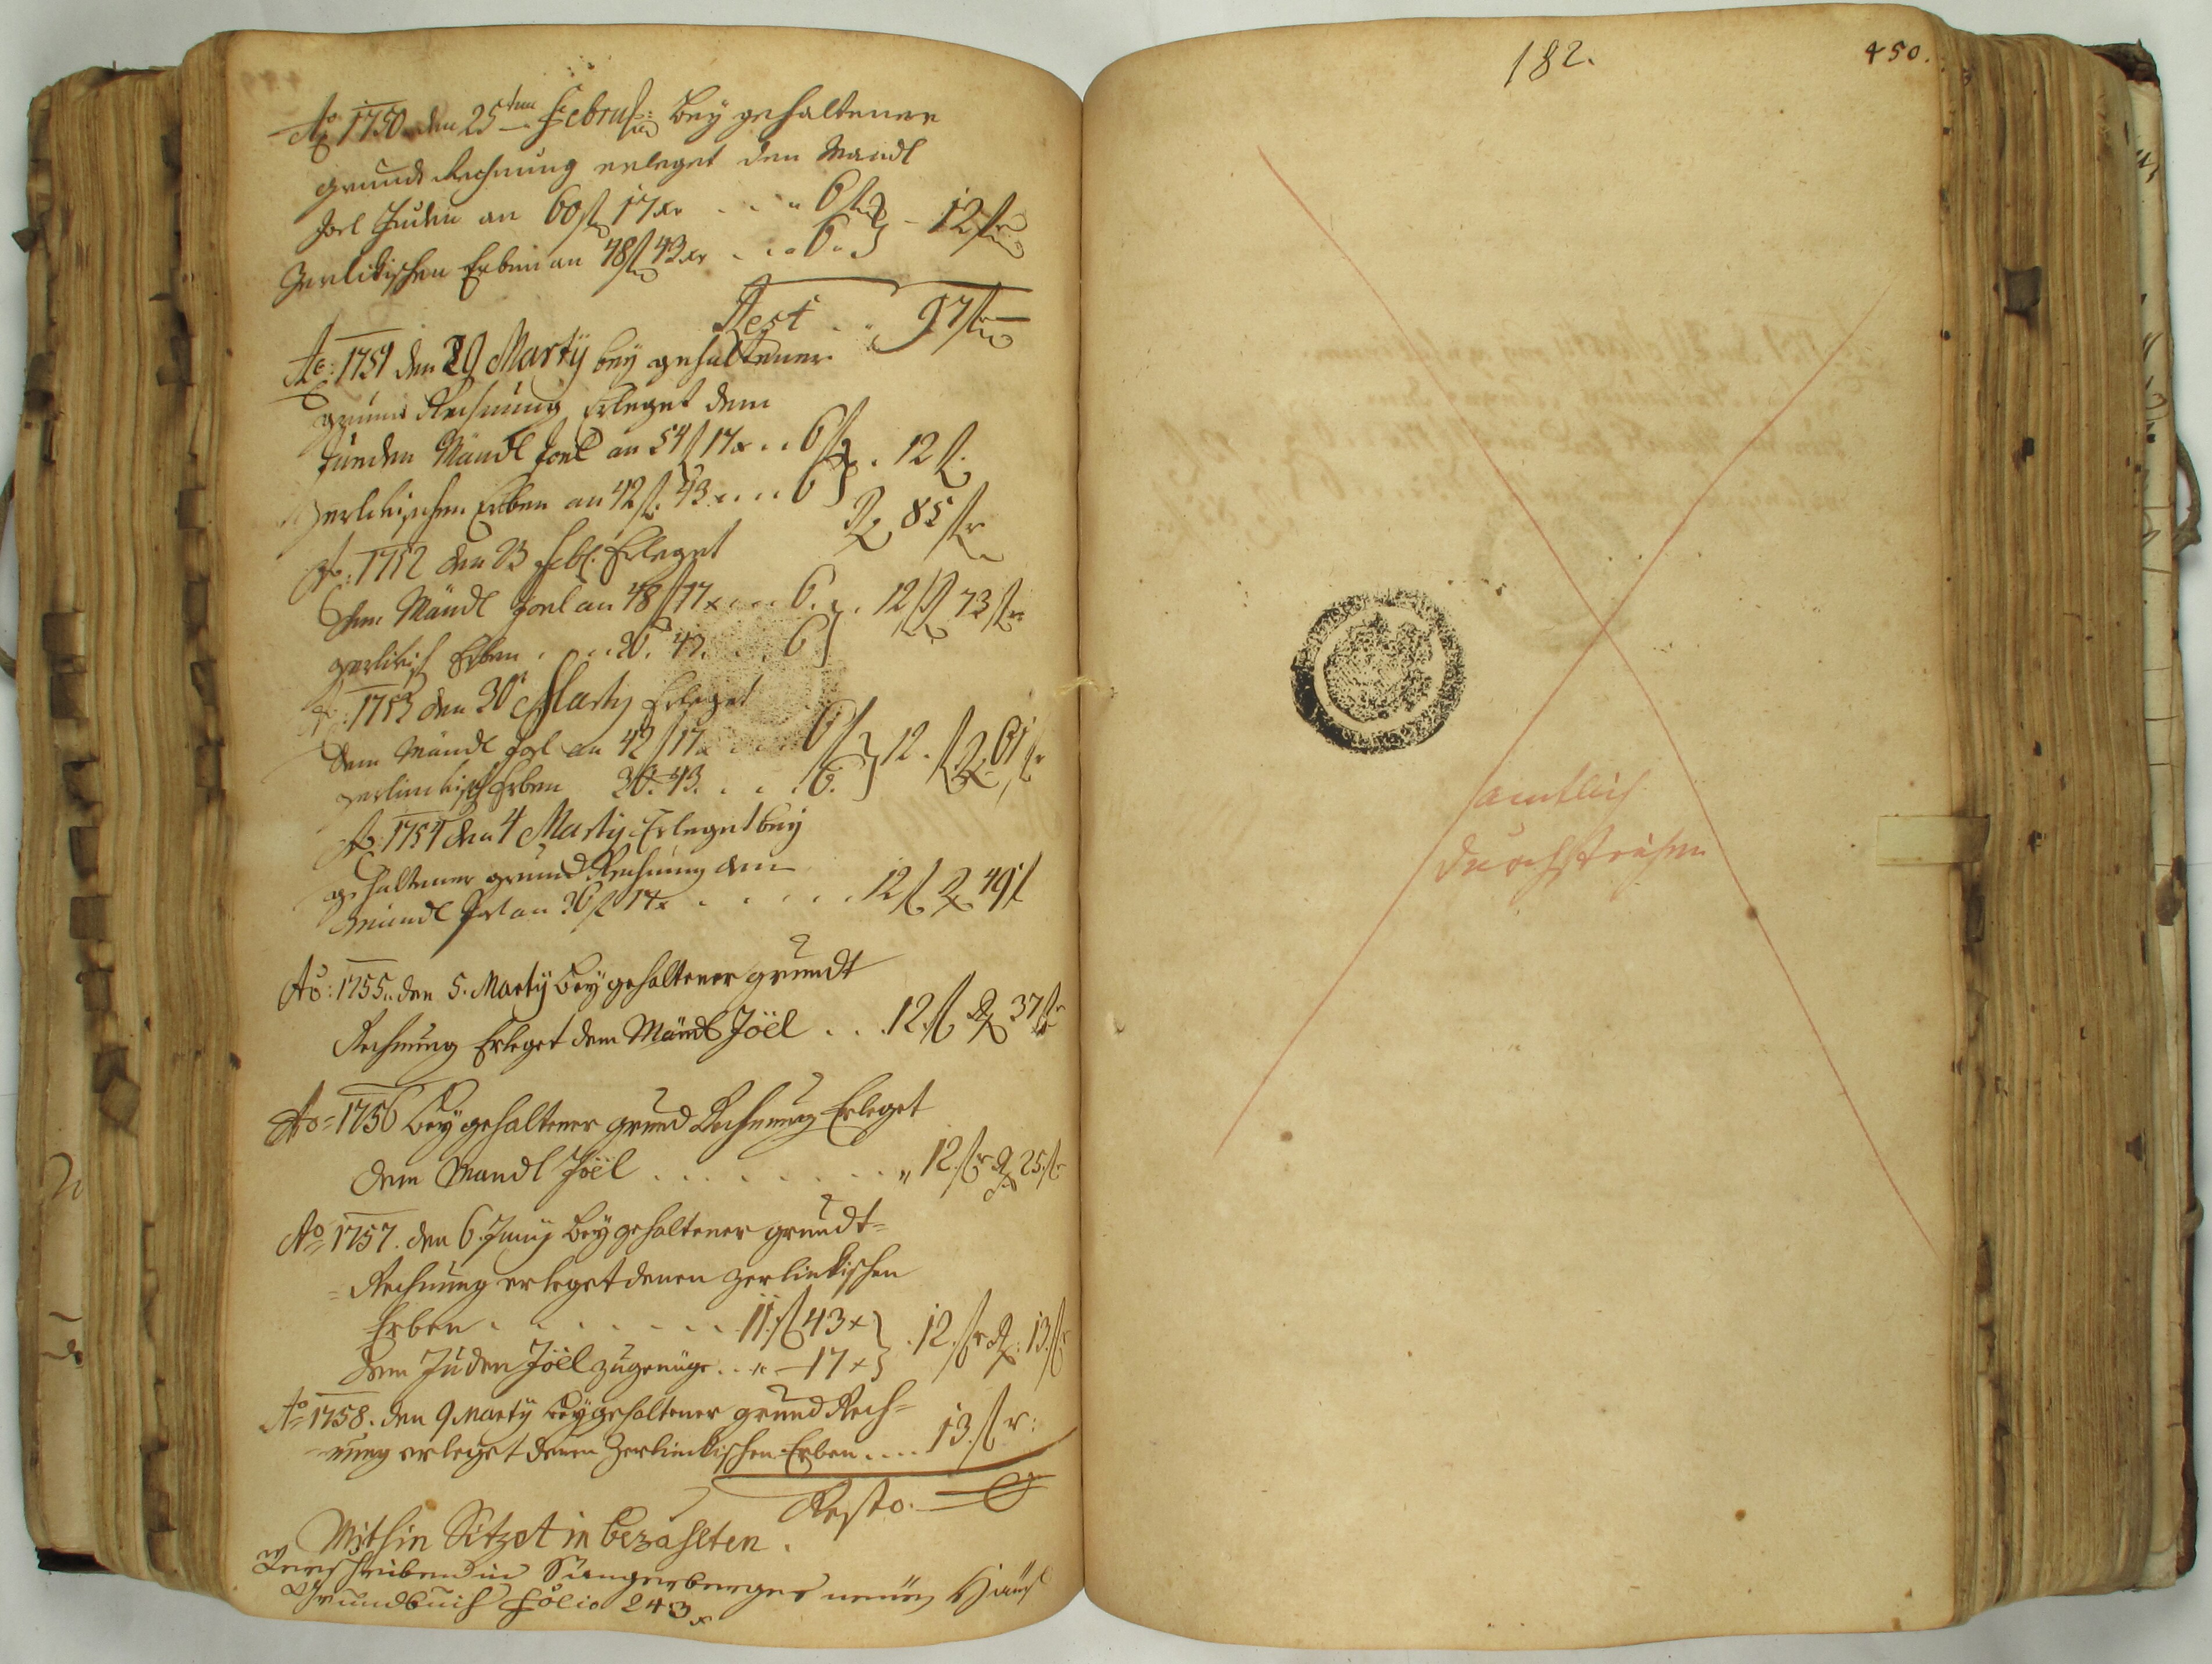 Ao 1750 den 25ten Febru: Bey gehaltener
grund Rechnung erleget den Mandl
Joel Juden an 60 f 17 xr . . . 6 f } - 12 f
Zerlikischen Erben an 48 f 43 xr . . . 6 . }
Rest . . 97 f
Ao: 1751 den 29 Martÿ beÿ gehaltener
grund Rechnung Erleget dem
Juden Mandl Joel an 54 f 17 x . . 6 f } . 12 f.
Zerlikischen Erben an 42 f. 43 x . . . 6 } R 85 fr
Ao: 1752 den 23 Feb. Erleget
dem Mandl Joel an 48 f 17 x . . . 6. } . 12 f R 73 fr
zerlikisch Erben . . . 36. 43. . . 6 }
Ao: 1753 den 30 Marty Erleget
dem Mandl Joel an 42 f 17 x . . . 6 f } 12. f R 61 fr
zerlinkisch Erben 30. 43. . . . 6. }
Ao: 1754 den 4 Marty Erleget bey
gehaltener grund Rechnung dem
Mandl Joel an 36 f 17 x . . . . . 12 f R 49 f
Ao: 1755. den 5. Martÿ Beÿ gehaltener grundt
Rechnung Erleget dem Mandl Joël . . . 12. f R 37 fr
Ao = 1756 Beÿ gehaltener grund Rechnung Erleget
dem Mandl Joël . . . . . . . . „ 12. fr R 25. fr
Ao = 1757. den 6. Junÿ beÿ gehaltener grundt=
= Rechnung erleget denen Zerlinkischen
Erben . . . . . . . . 11. f 43 x } . 12. fr R: 13. fr
dem Juden Joël zugenüge . . „ — 17 x }
Ao = 1758. den 9 Martÿ Beÿ gehaltener grund Rech=
=nung erleget denen Zerlinkischen Erben . . . . 13. fr:
Resto. —
Mithin Sitzet in bezahlten.
Verschrieben in Sangerberger neuen Häusl
Grundbuch Folio 243
182.
450.
amtlich
durchstrichen